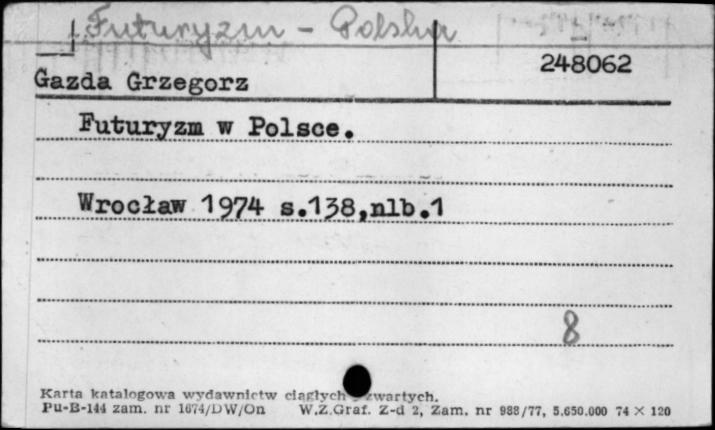 Futuryzm - Polska
Gazda Grzegorz 248062
Futuryzm w Polsce.
Wrocław 1974 s.138,nlb.1
8
Karta katalogowa wydawnictw ciągłych zwartych.
Pu-B-144 zam. nr 1674/DW/On W.Z.Graf. Z-d 2, Zam. nr 988/77, 5.650.000 74 × 120